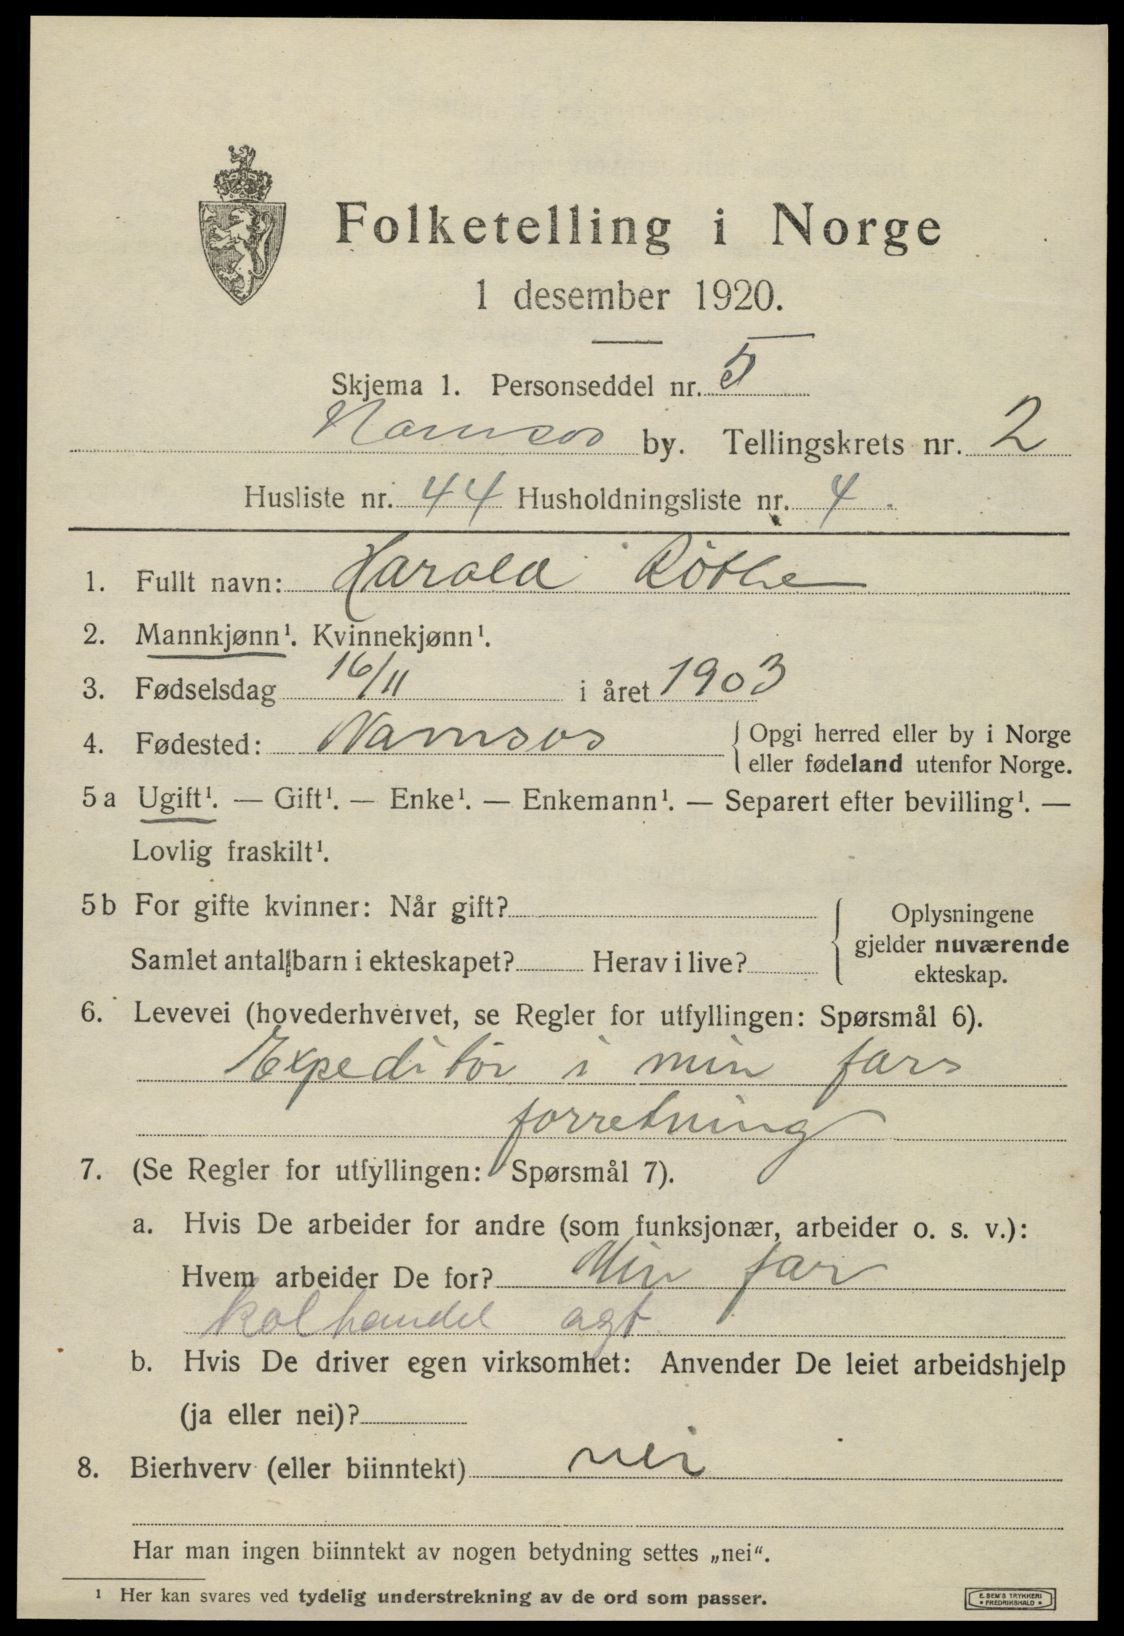 Folketelling i Norge
1 desember 1920.
Skjema 1. Personseddel nr. 5
Namsos by. Tellingskrets nr. 2
Husliste nr. 44 Husholdningsliste nr. 4.
1. Fullt navn: Harald Røthe
2. Mannkjønn¹. Kvinnekjønn¹.
3. Fødselsdag 16/11 i året 1903
4. Fødested: Namsos
Opgi herred eller by i Norge
eller fødeland utenfor Norge.
5a Ugift¹. — Gift¹. — Enke¹. — Enkemann¹. — Separert efter bevilling¹. —
Lovlig fraskilt¹.
5b For gifte kvinner: Når gift?
Samlet antal barn i ekteskapet? Herav i live?
Oplysningene
gjelder nuværende
ekteskap.
6. Levevei (hovederhvervet, se Regler for utfyllingen: Spørsmål 6).
Expeditør i min fars
forretning
7. (Se Regler for utfyllingen: Spørsmål 7).
a. Hvis De arbeider for andre (som funksjonær, arbeider o. s. v.):
Hvem arbeider De for? Min far
kolhandel agt.
b. Hvis De driver egen virksomhet: Anvender De leiet arbeidshjelp
(ja eller nei)?
8. Bierhverv (eller biinntekt) nei
Har man ingen biinntekt av nogen betydning settes „nei“.
¹ Her kan svares ved tydelig understrekning av de ord som passer.
E. SEM'S TRYKKERI
• FREDRIKSHALD •